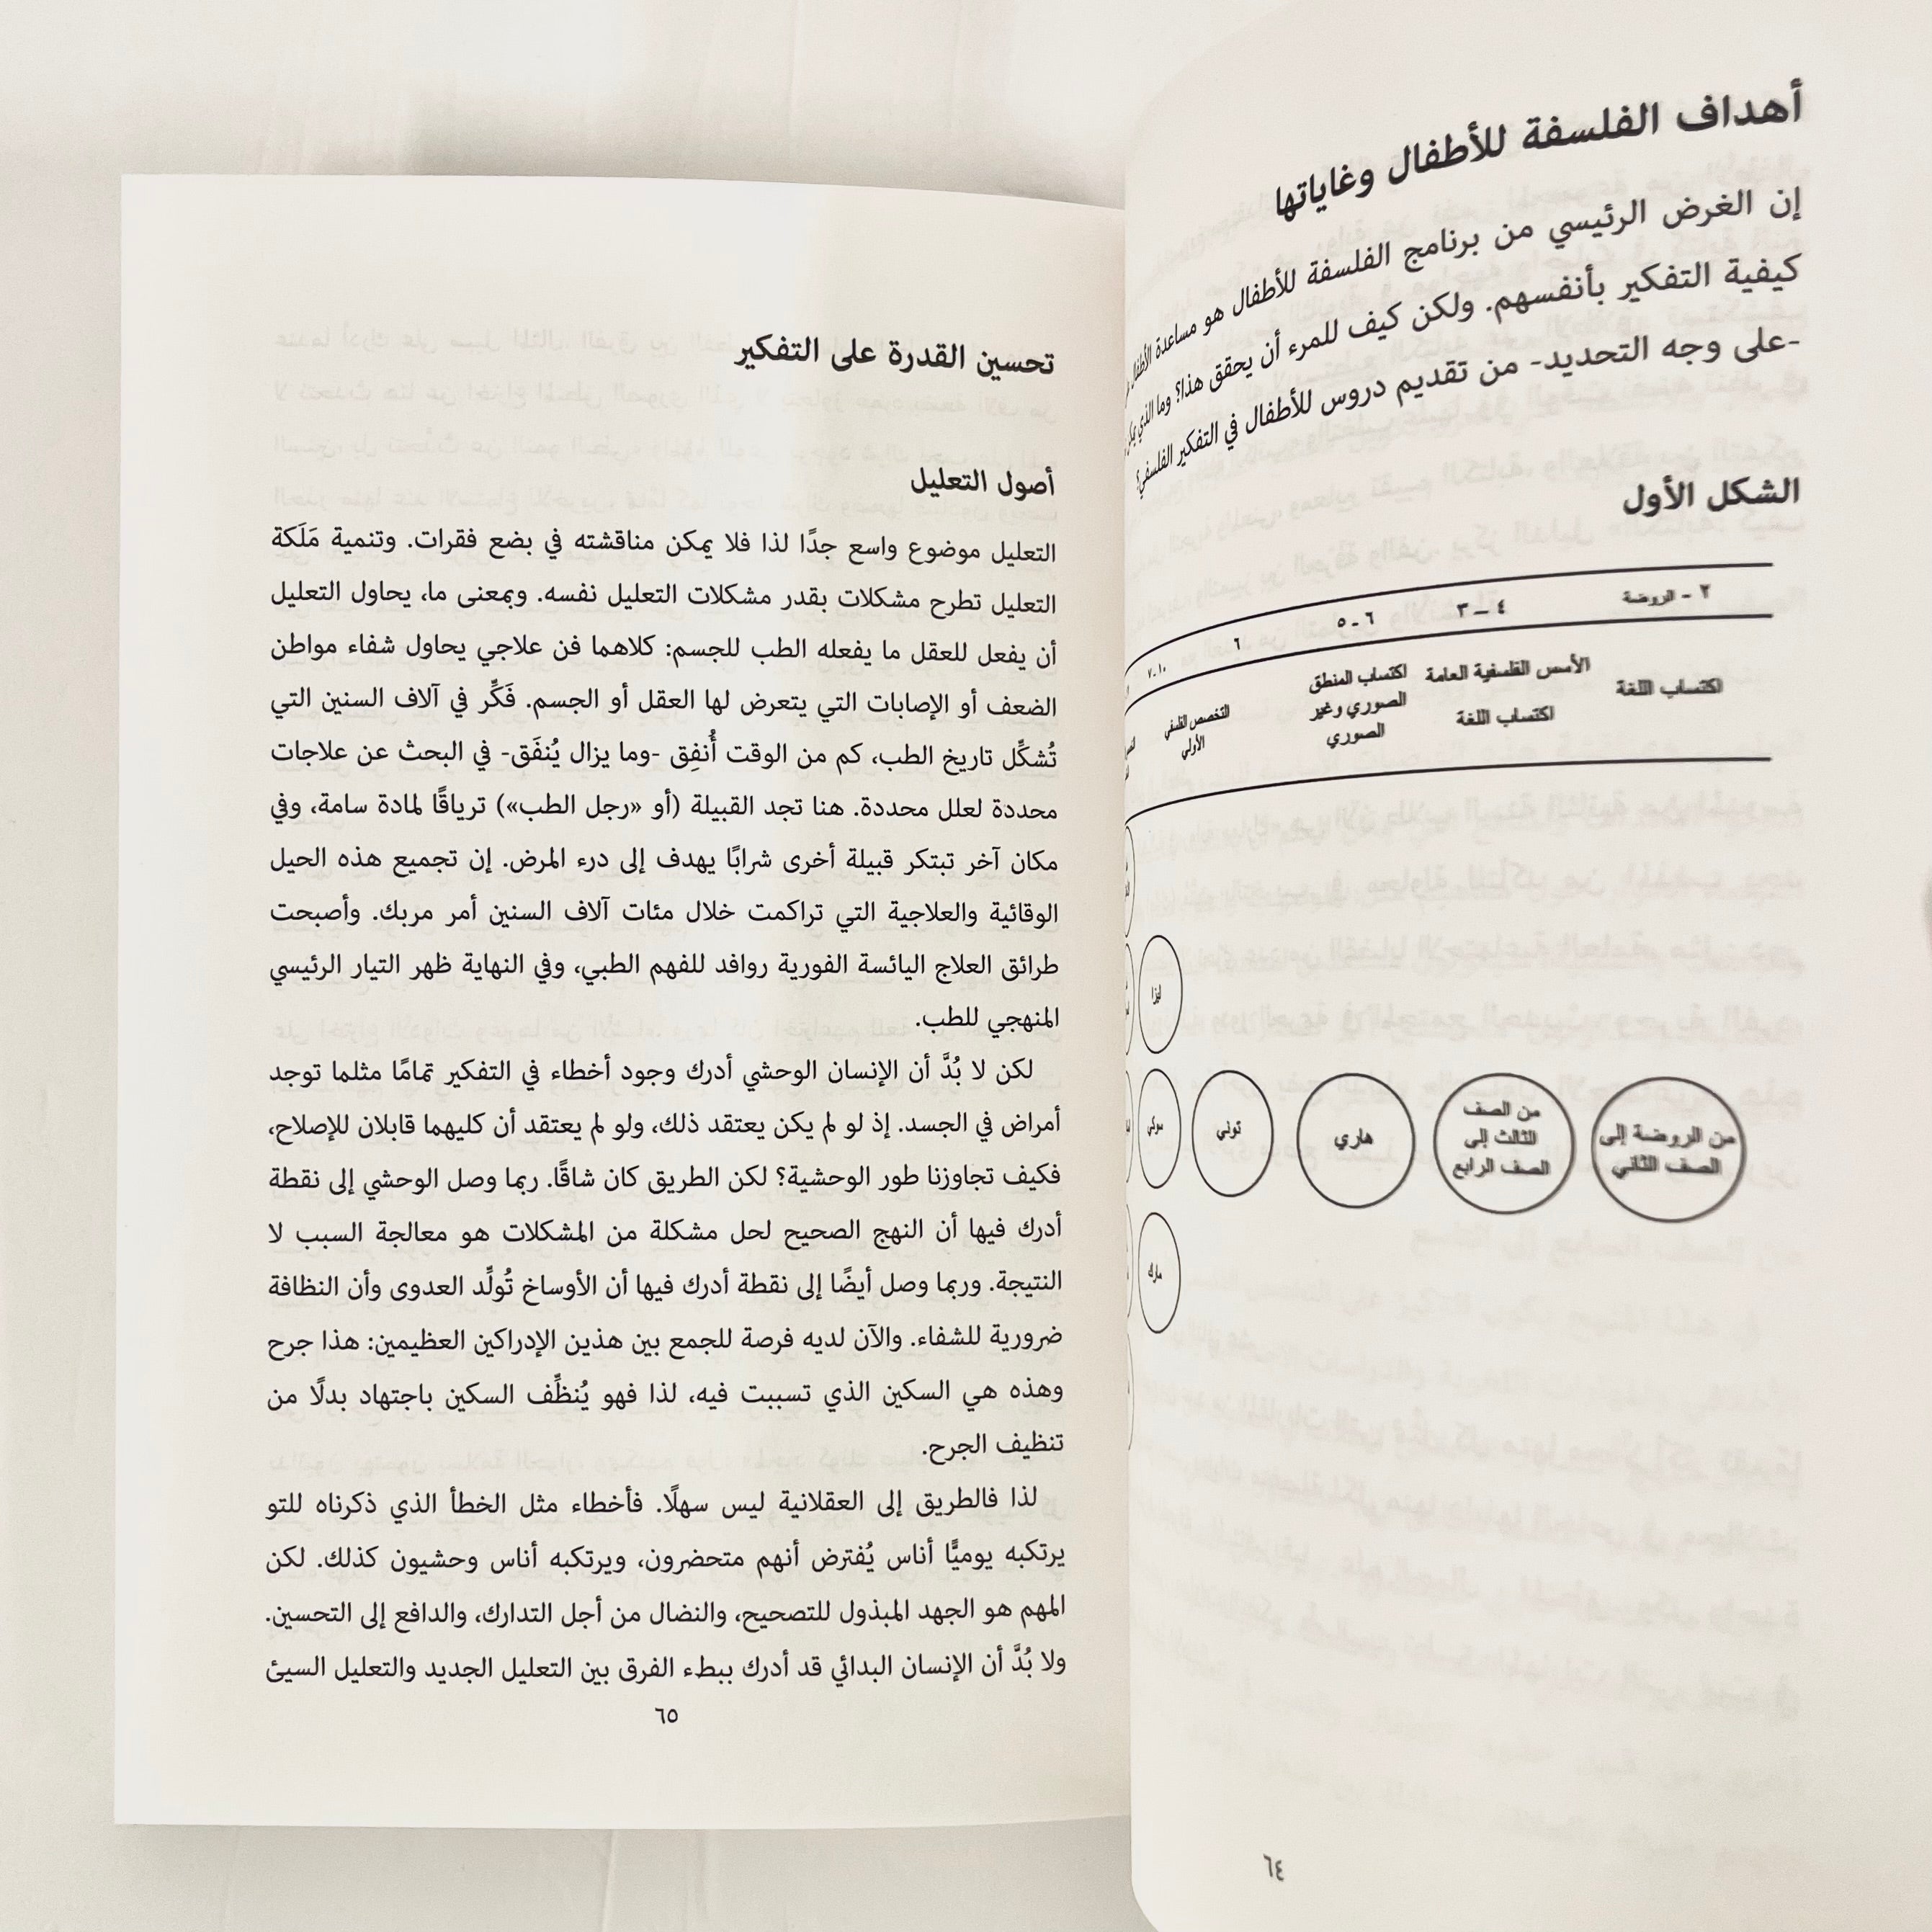 أهداف الفلسفة للأطفال وغاياتها
إن الغرض الرئيسي من برنامج الفلسفة للأطفال هو مساعدة الأطفال
كيفية التفكير بأنفسهم. ولكن كيف للمرء أن يحقق هذا؟ وما الذي
-على وجه التحديد- من تقديم دروس للأطفال في التفكير الفلسفي؟
الشكل الأول
٢ - الروضة
٤ – ٣
٦ - ٥
٦
١٠-٧
اكتساب اللغة
الأسس الفلسفية العامة
اكتساب اللغة
اكتساب المنطق
الصوري وغير
الصوري
التخصص الفلسفي
الأولي
من الروضة إلى
الصف الثاني
من الصف
الثالث إلى
الصف الرابع
هاري
توني
ليزا
سوكي
مارك
٦٤
تحسين القدرة على التفكير
أصول التعليل
التعليل موضوع واسع جدًا لذا فلا يمكن مناقشته في بضع فقرات. وتنمية مَلَكة
التعليل تطرح مشكلات بقدر مشكلات التعليل نفسه. وبمعنى ما، يحاول التعليل
أن يفعل للعقل ما يفعله الطب للجسم: كلاهما فن علاجي يحاول شفاء مواطن
الضعف أو الإصابات التي يتعرض لها العقل أو الجسم. فَكِّر في آلاف السنين التي
تُشكِّل تاريخ الطب، كم من الوقت أُنفِق -وما يزال يُنفَق- في البحث عن علاجات
محددة لعلل محددة. هنا تجد القبيلة (أو «رجل الطب») ترياقًا لمادة سامة، وفي
مكان آخر تبتكر قبيلة أخرى شرابًا يهدف إلى درء المرض. إن تجميع هذه الحيل
الوقائية والعلاجية التي تراكمت خلال مئات آلاف السنين أمر مربك. وأصبحت
طرائق العلاج اليائسة الفورية روافد للفهم الطبي، وفي النهاية ظهر التيار الرئيسي
المنهجي للطب.
لكن لا بُدَّ أن الإنسان الوحشي أدرك وجود أخطاء في التفكير تمامًا مثلما توجد
أمراض في الجسد. إذ لو لم يكن يعتقد ذلك، ولو لم يعتقد أن كليهما قابلان للإصلاح،
فكيف تجاوزنا طور الوحشية؟ لكن الطريق كان شاقًا. ربما وصل الوحشي إلى نقطة
أدرك فيها أن النهج الصحيح لحل مشكلة من المشكلات هو معالجة السبب لا
النتيجة. وربما وصل أيضًا إلى نقطة أدرك فيها أن الأوساخ تُولِّد العدوى وأن النظافة
ضرورية للشفاء. والآن لديه فرصة للجمع بين هذين الإدراكين العظيمين: هذا جرح
وهذه هي السكين الذي تسببت فيه، لذا فهو يُنظِّف السكين باجتهاد بدلًا من
تنظيف الجرح.
لذا فالطريق إلى العقلانية ليس سهلًا. فأخطاء مثل الخطأ الذي ذكرناه للتو
يرتكبه يوميًّا أناس يُفترض أنهم متحضرون، ويرتكبه أناس وحشيون كذلك. لكن
المهم هو الجهد المبذول للتصحيح، والنضال من أجل التدارك، والدافع إلى التحسين.
ولا بُدَّ أن الإنسان البدائي قد أدرك ببطء الفرق بين التعليل الجديد والتعليل السيئ
٦٥